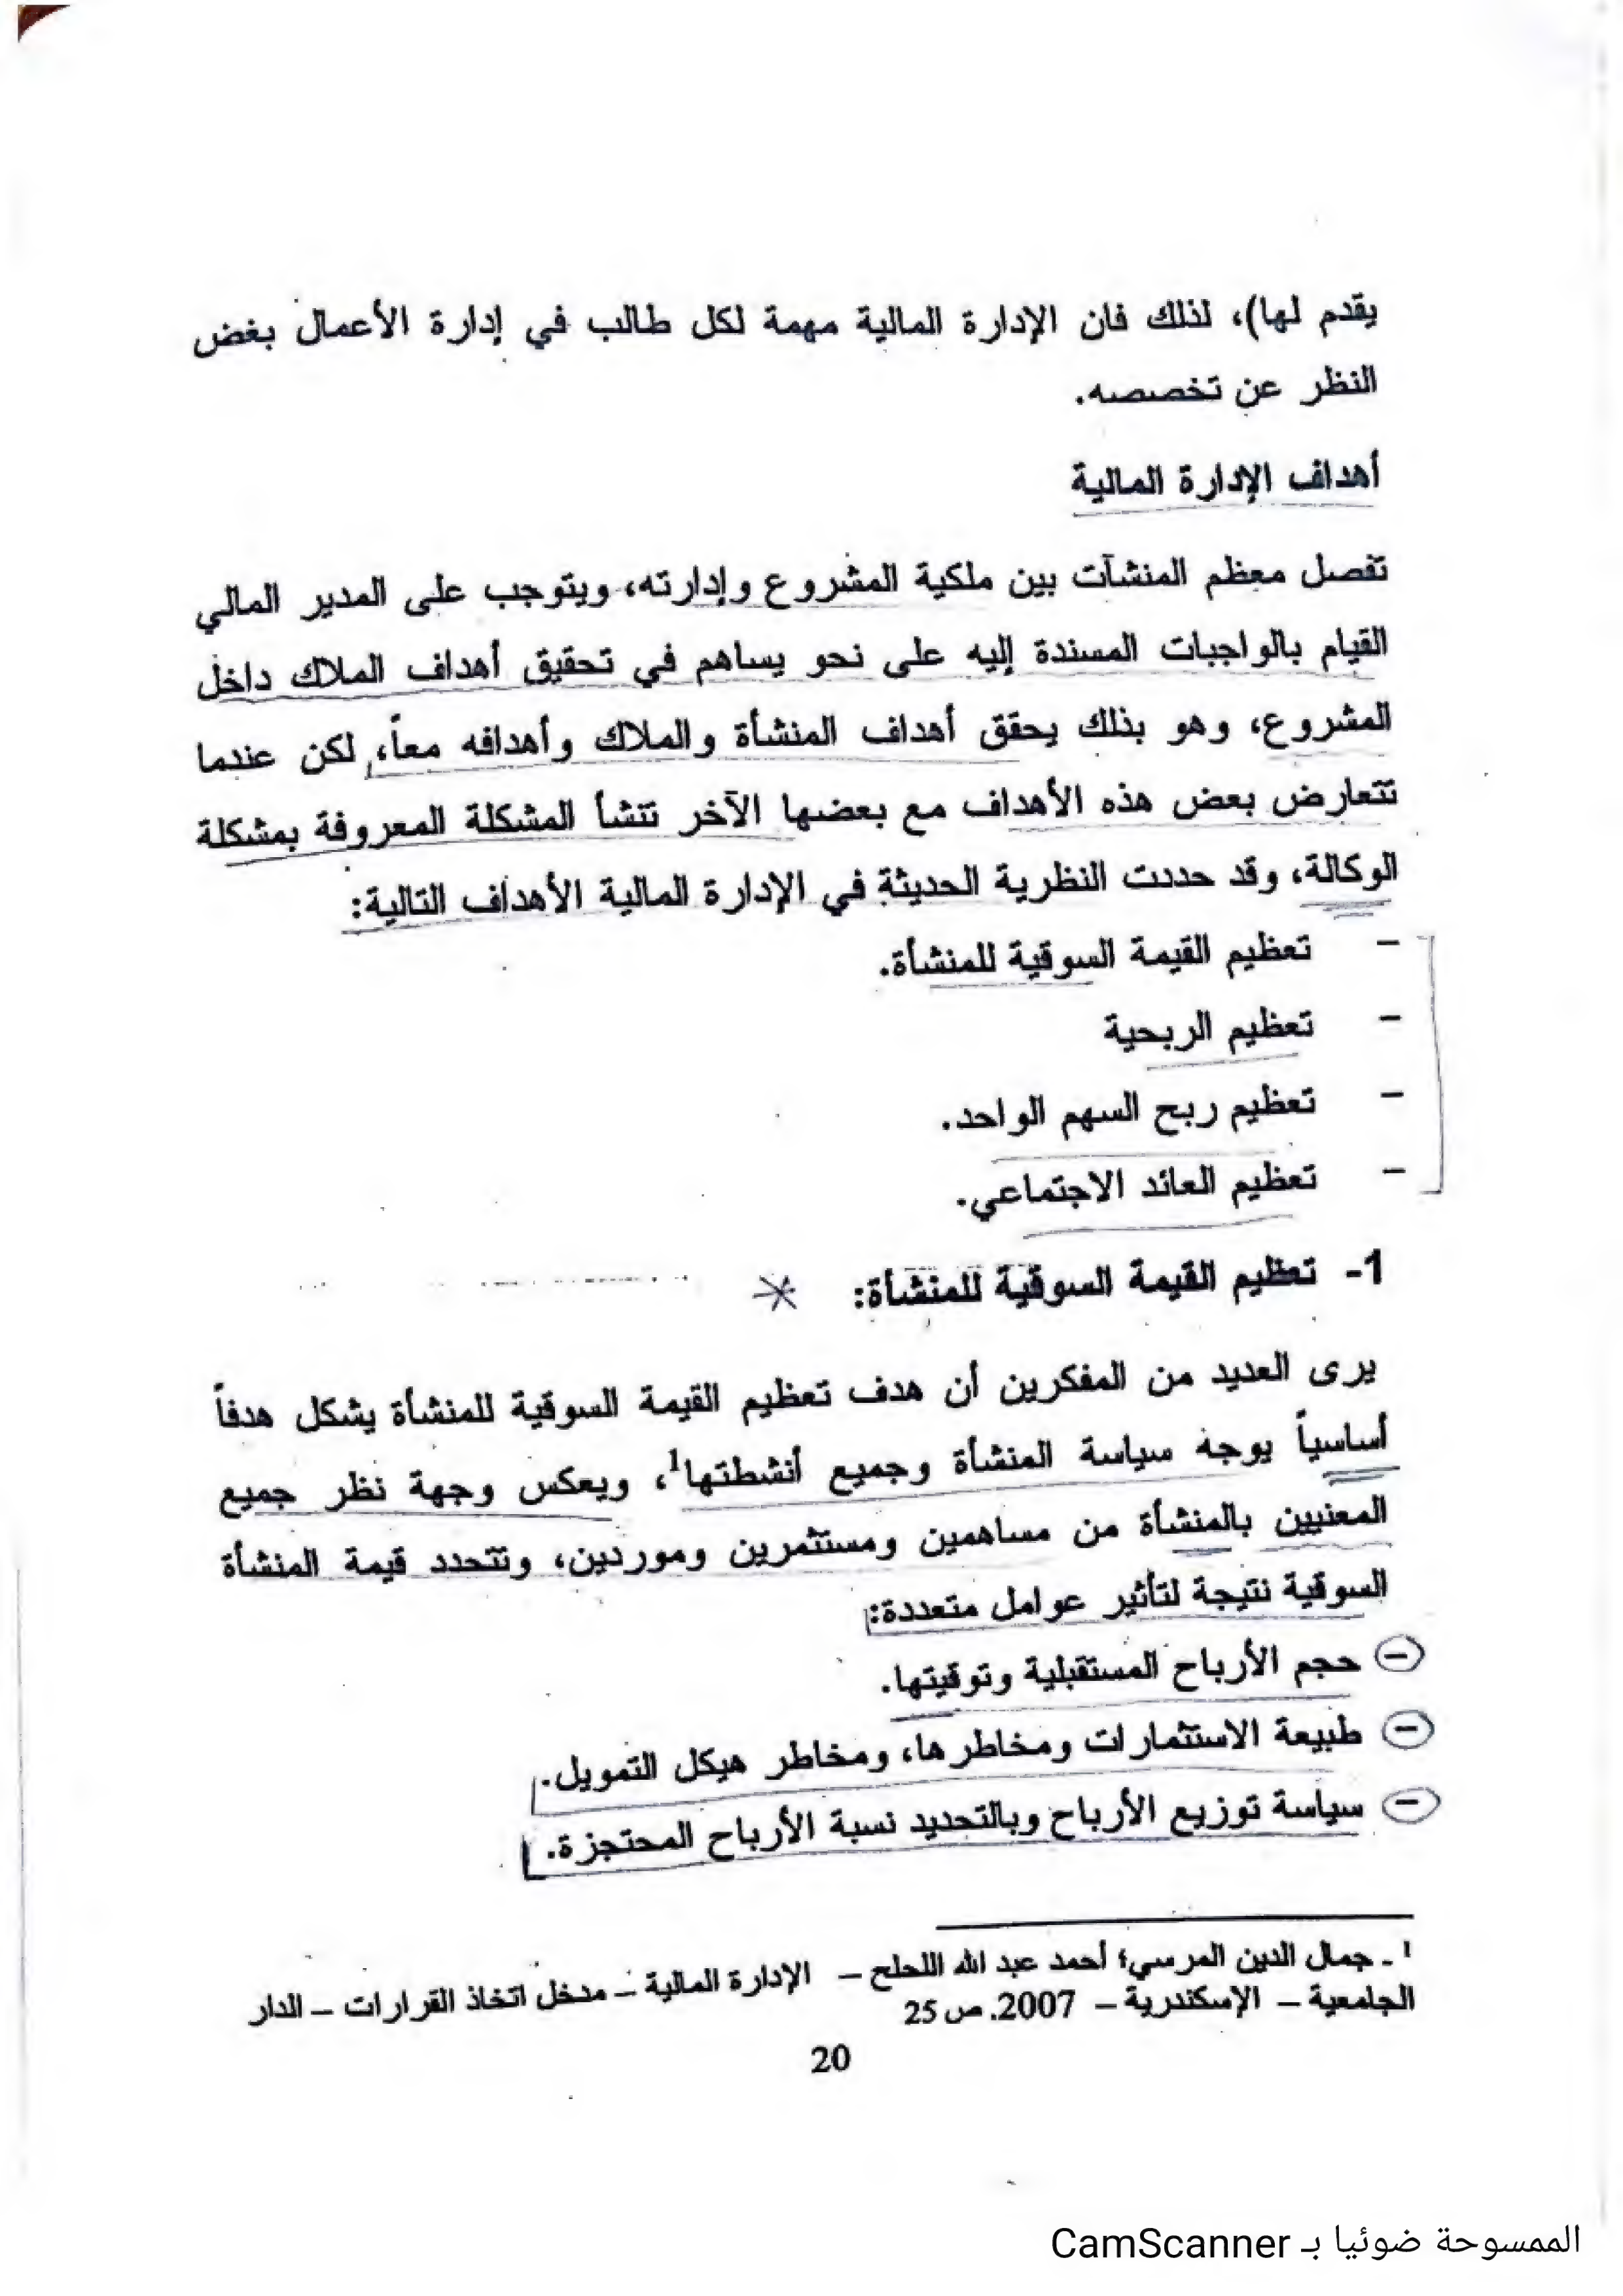 يقدم لها)، لذلك فان الإدارة المالية مهمة لكل طالب في إدارة الأعمال بغض
النظر عن تخصصه.
أهداف الإدارة المالية
تفصل معظم المنشآت بين ملكية المشروع وإدارته، ويتوجب على المدير المالي
القيام بالواجبات المسندة إليه على نحو يساهم في تحقيق أهداف الملاك داخل
المشروع، وهو بذلك يحقق أهداف المنشأة والملاك وأهدافه معاً، لكن عندما
تتعارض بعض هذه الأهداف مع بعضها الآخر تنشأ المشكلة المعروفة بمشكلة
الوكالة، وقد حددت النظرية الحديثة في الإدارة المالية الأهداف التالية:
- تعظيم القيمة السوقية للمنشأة.
- تعظيم الربحية
- تعظيم ربح السهم الواحد.
- تعظيم العائد الاجتماعي.
1- تعظيم القيمة السوقية للمنشأة:
يرى العديد من المفكرين أن هدف تعظيم القيمة السوقية للمنشأة يشكل هدفاً
أساسياً يوجه سياسة المنشأة وجميع أنشطتها1، ويعكس وجهة نظر جميع
المعنيين بالمنشأة من مساهمين ومستثمرين وموردين، وتتحدد قيمة المنشأة
السوقية نتيجة لتأثير عوامل متعددة:
- حجم الأرباح المستقبلية وتوقيتها.
- طبيعة الاستثمارات ومخاطرها، ومخاطر هيكل التمويل.
- سياسة توزيع الأرباح وبالتحديد نسبة الأرباح المحتجزة.
1 - جمال الدين المرسي؛ أحمد عبد الله اللحلح – الإدارة المالية – مدخل اتخاذ القرارات – الدار
الجامعية – الإسكندرية – 2007. ص 25
20
الممسوحة ضوئيا بـ CamScanner